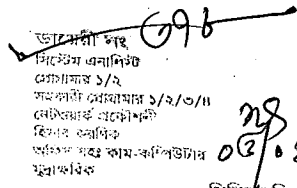 ডায়েরী নং ৩৭৮
সিস্টেম এনালিস্ট
প্রোগ্রামার ১/২
সহকারী প্রোগ্রামার ১/২/৩/৪
নেটওয়ার্ক প্রকৌশলী
হিসাব রক্ষণিক
অফিস সহঃ কাম-কম্পিউটার
মুদ্রাক্ষরিক